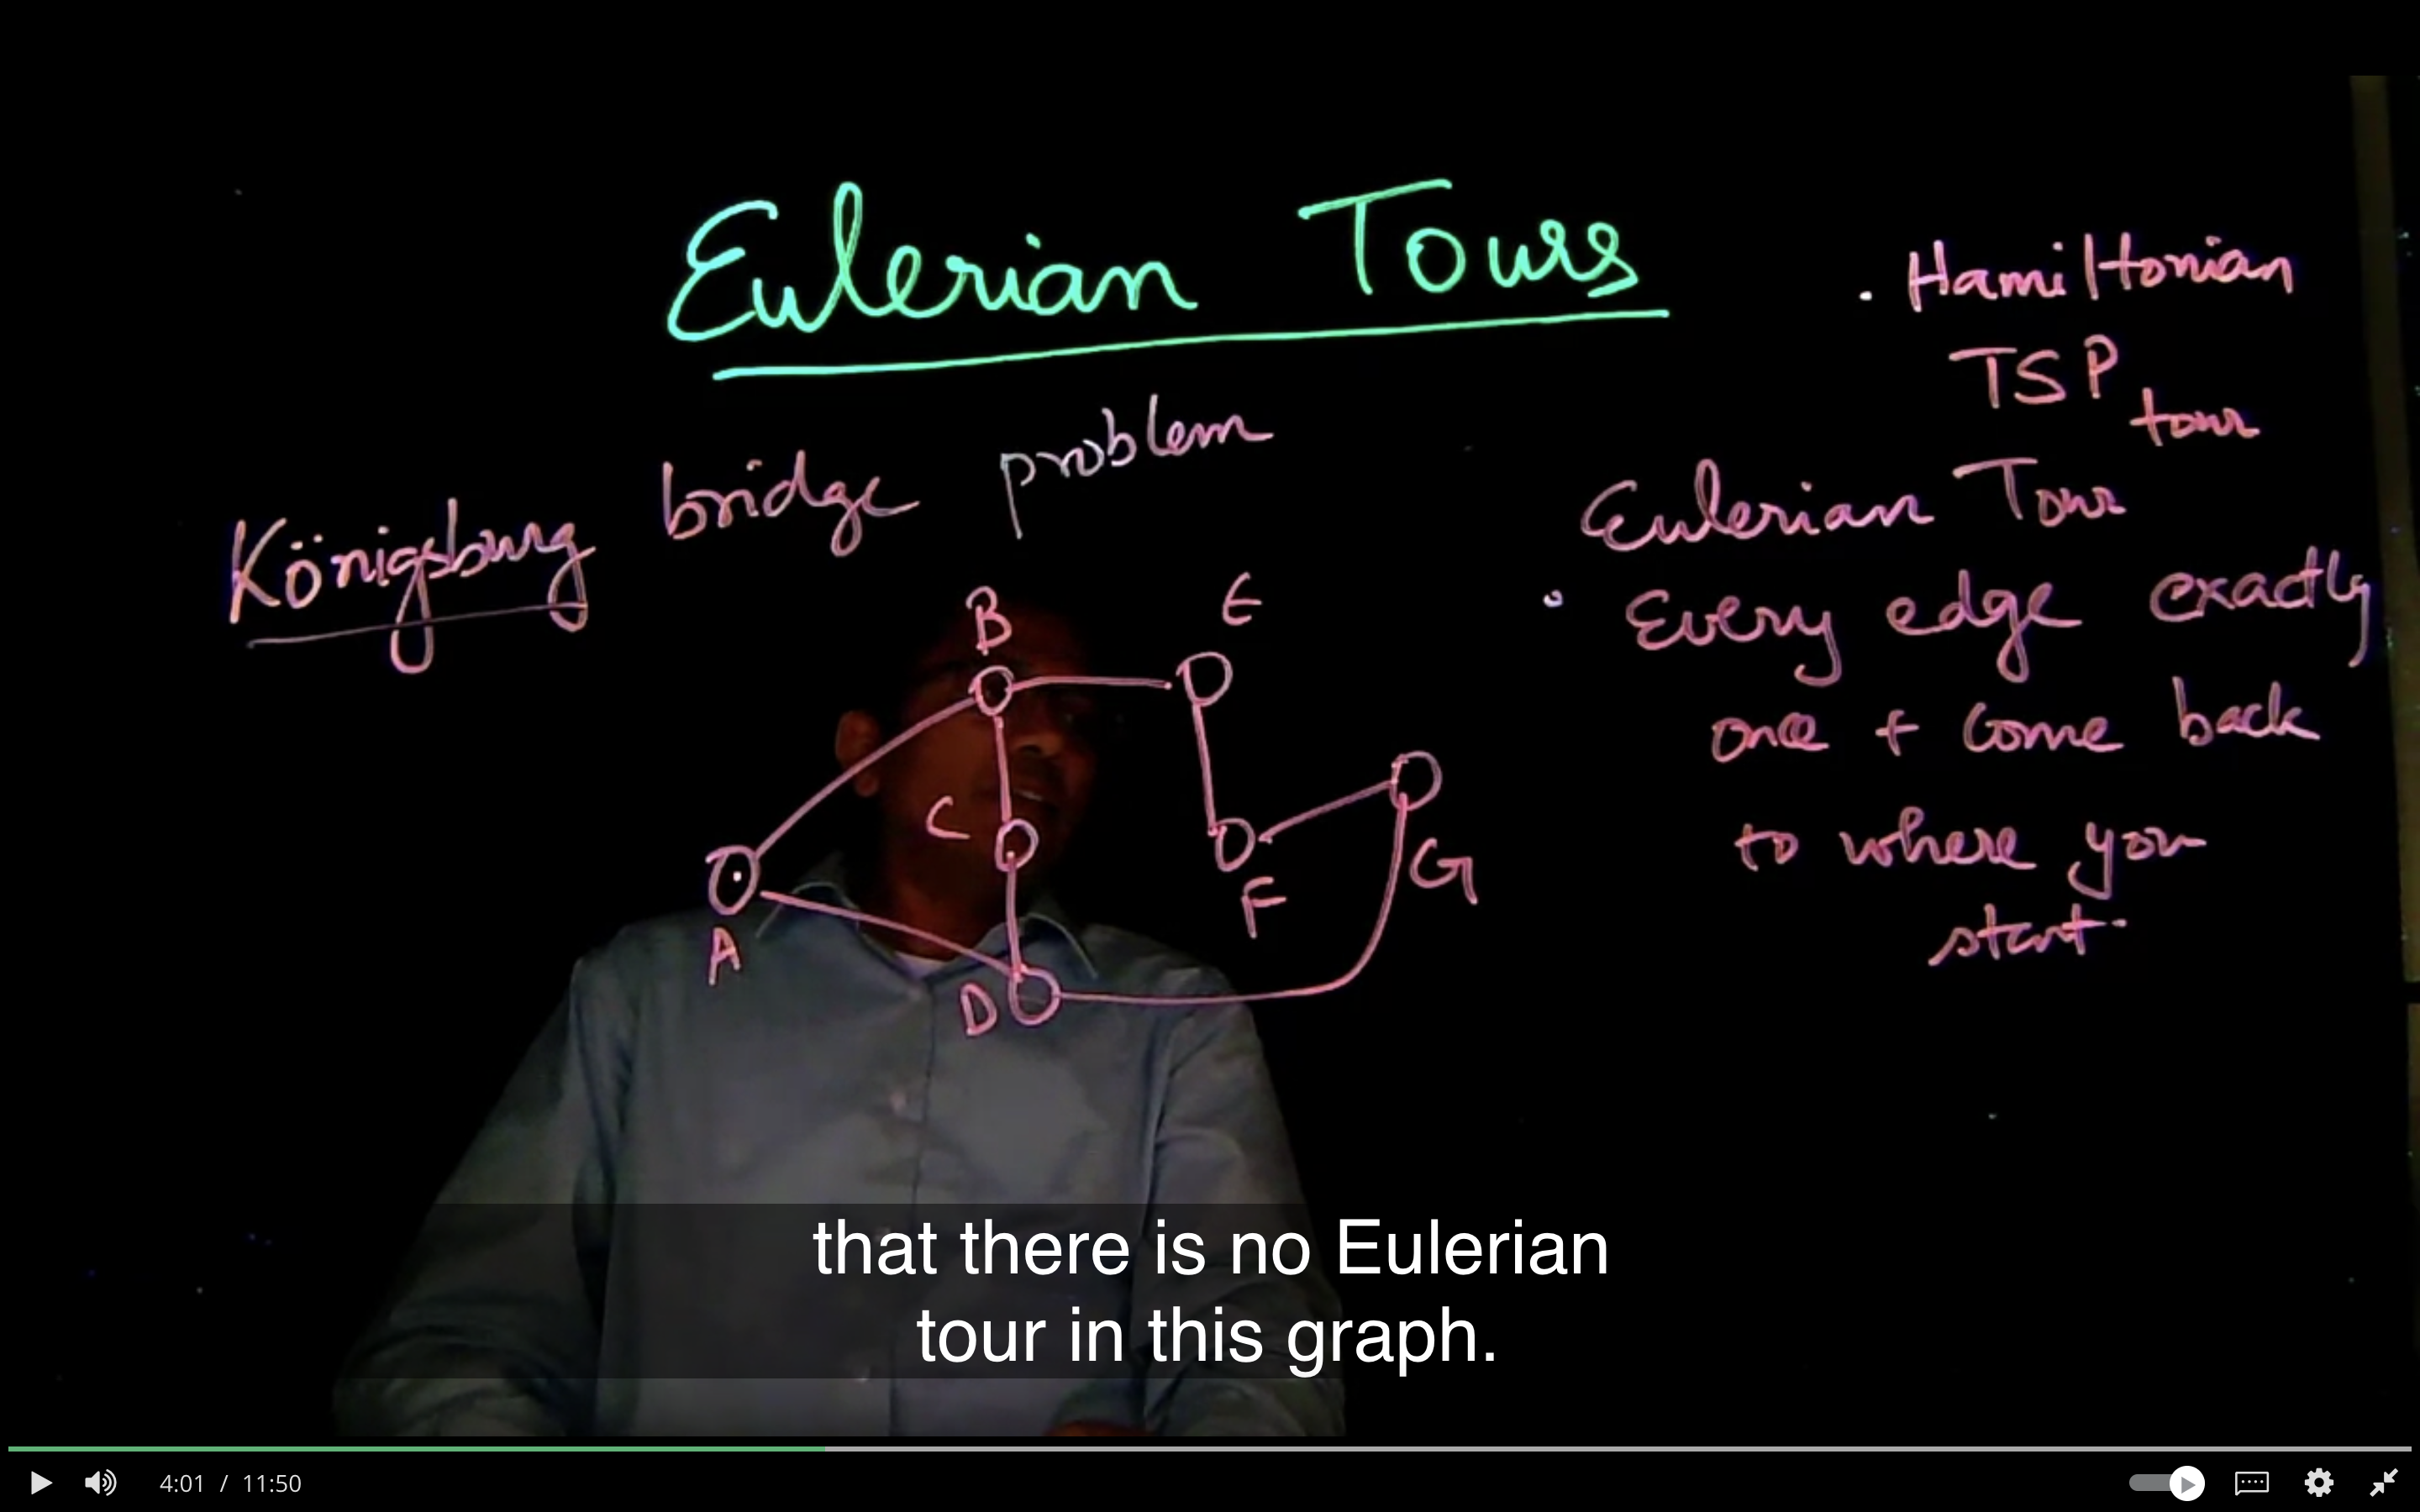 Eulerian Tours
Königsburg bridge problem
B
E
C
G
F
A
D
. Hamiltonian
TSP
tour
Eulerian Tour
. Every edge exactly
once + Come back
to where you
start.
that there is no Eulerian
tour in this graph.
4:01 / 11:50